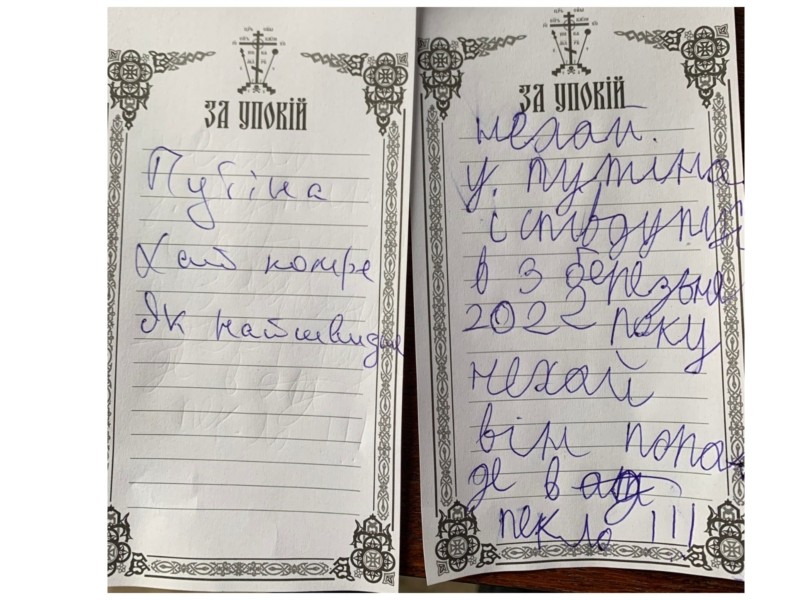 ЗА УПОКІЙ
Путіна
Хай помре
Як найшвидше
ЗА УПОКІЙ
нехай.
у путіна
і
в 3 березьня
2022 року
нехай
він попа-
де в
пекло !!!